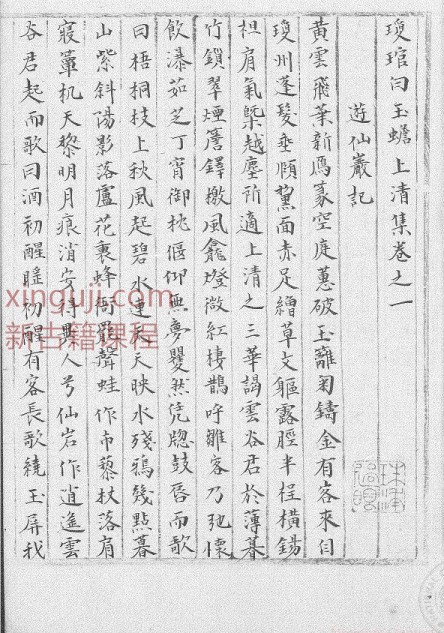 瓊琯白玉蟾上清集卷之一
遊仙巖記
黄雲飛葉新鴈篆空庭蕙破玉籬菊鑄金有客來自
瓊州蓬髮垂頥黧面赤足繒草文軀露脛半桎橫錫
袒肩氣槩越塵所適上清之三華謁雲谷君於薄暮
竹鎖翠煙簷鐸撤風龕燈微紅棲鵲呼雛客乃弛懷
飲瀑茹芝丁宵御枕偃仰無夢矍然凭牕鼓唇而歌
曰梧桐枝上秋風起碧水連天天映水殘鴉幾點暮
山紫斜陽影落蘆花裏蜂衙罷聲蛙作市藜杖落肩
寢簟机天黎明月痕消安得異人兮仙岩作逍遙雲
谷君起而歌曰酒初醒睡初醒有客長歌繞玉屏我
xinguji.com
新古籍課程